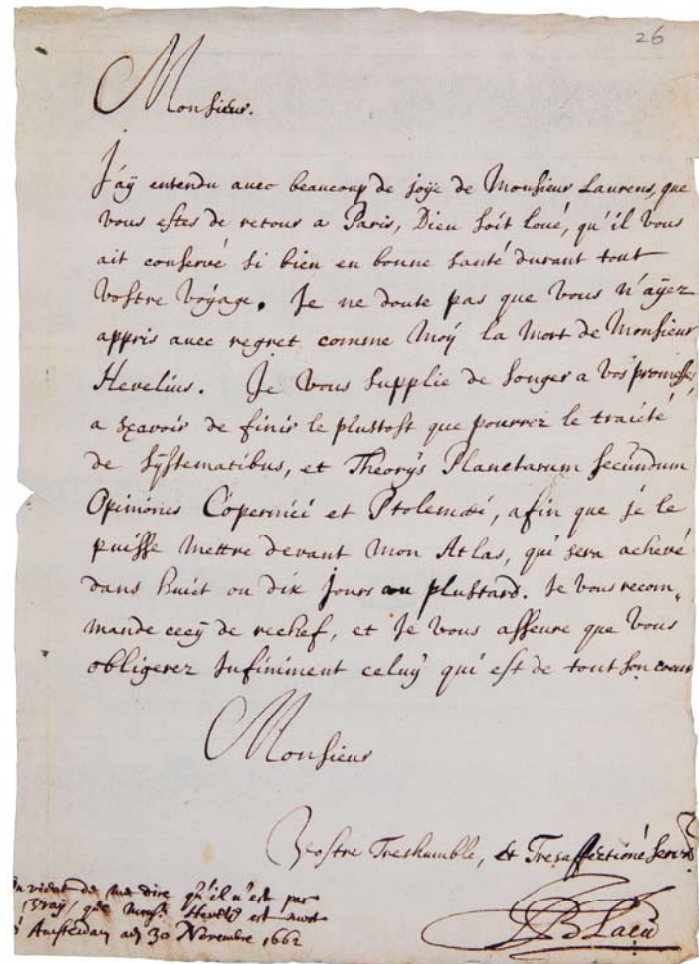 26
Monsieur.
J'aÿ entendu avec beaucoup de joÿe de Monsieur Laurens, que
vous estes de retour a Paris, Dieu soit loué, qu'il vous
ait conservé si bien en bonne santé durant tout
vostre voÿage. Je ne doute pas que vous n'aÿez
appris avec regret comme moÿ la mort de Monsieur
Hevelius. Je vous supplie de songer a vos promesses
a sçavoir de finir le plustost que pourrez le traicté
de Sÿstematibus, et Theorÿs Planetarum secundum
Opiniones Copernici et Ptolemæi, afin que je le
puisse mettre devant mon Atlas, qui sera achevé
dans huict ou dix jours au plustard. Je vous recom„
mande cecÿ de rechef, et je vous asseure que vous
obligerez infiniment celuÿ qui est de tout son coeur
Monsieur
Vostre Treshumble, et Tresaffectioné servr
vient de me dire qu'il n'est pas
vraÿ, que Monsr. Hevelÿ est mort
Amsterdam adj 30 Novembre 1662
J Blaeu